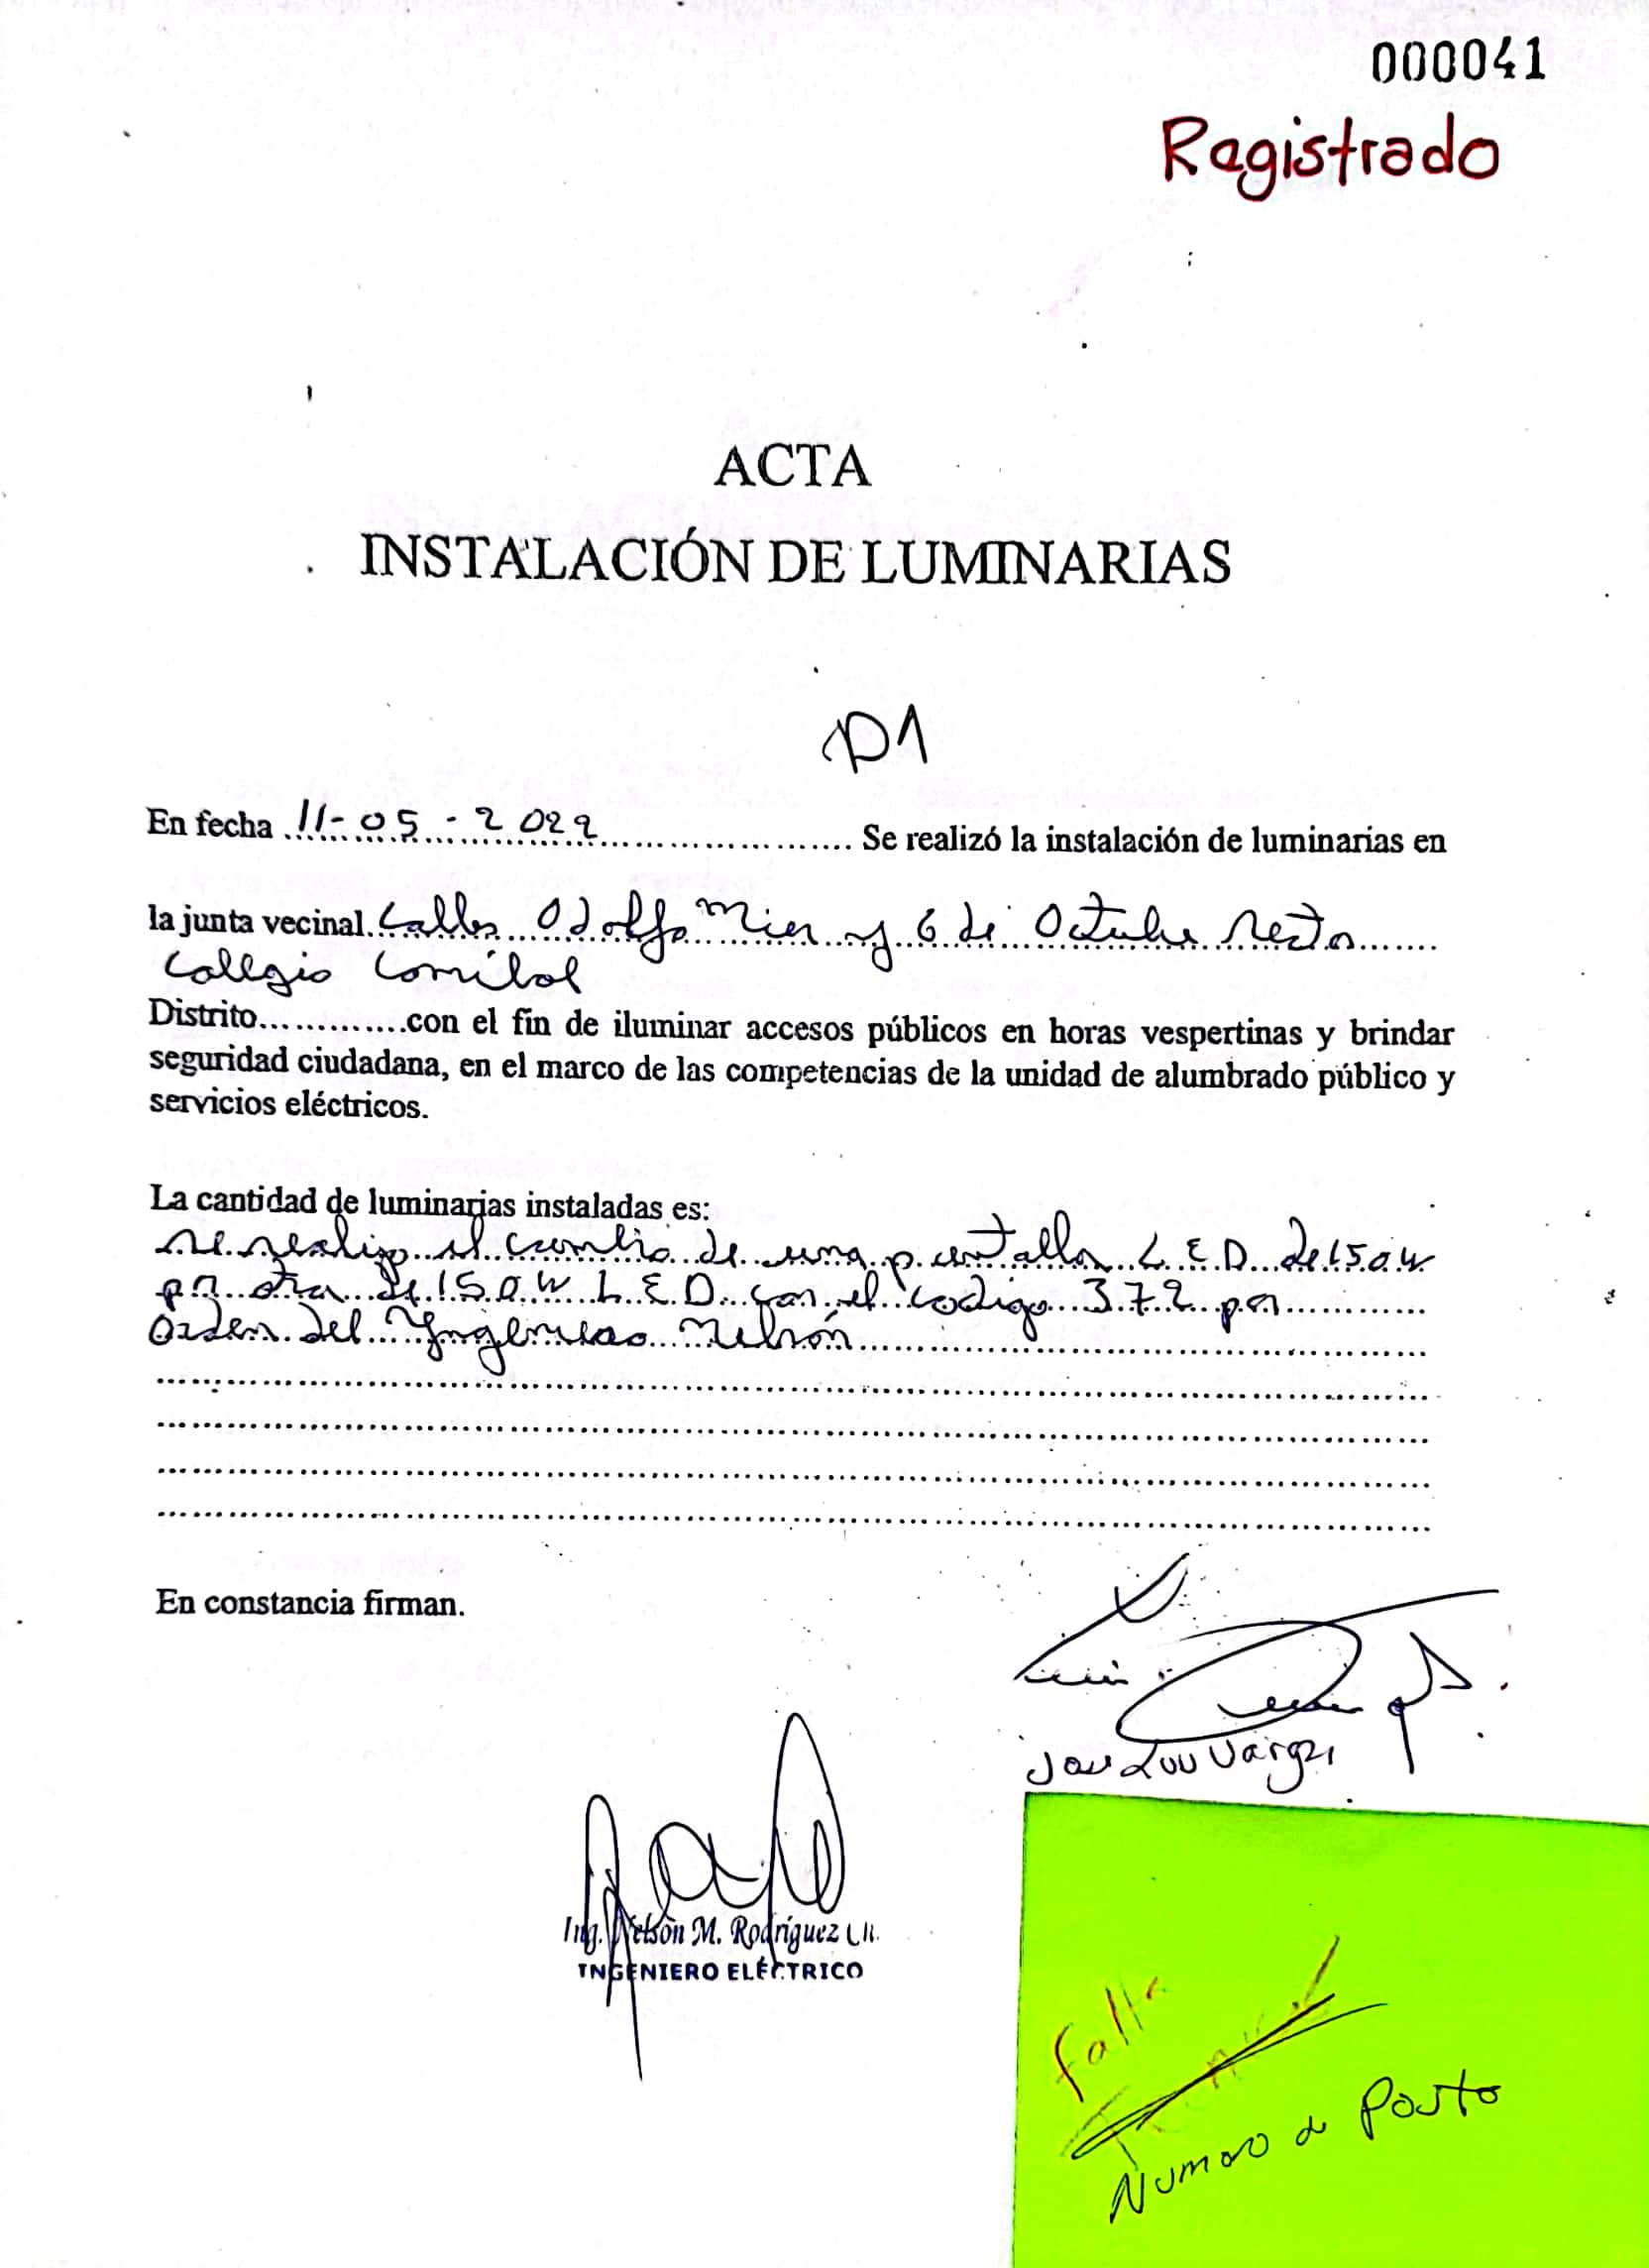 000041
Registrado
ACTA
INSTALACIÓN DE LUMINARIAS
D1
En fecha 11-05-2022 Se realizó la instalación de luminarias en
la junta vecinal. Calles Odolfo Mier y 6 de Octubre
Collegio Comibol
Distrito..............con el fin de iluminar accesos públicos en horas vespertinas y brindar
seguridad ciudadana, en el marco de las competencias de la unidad de alumbrado público y
servicios eléctricos.
La cantidad de luminarias instaladas es:
se realizo el cambio de una pantalla L.E.D. de 150w
por otra de 150w L.E.D con el codigo 372 por
Orden del Yngeniero Nelsón
En constancia firman.
Vargas
Ing. Nelson M. Rodríguez
INGENIERO ELÉCTRICO
Falta
Numero de Posto